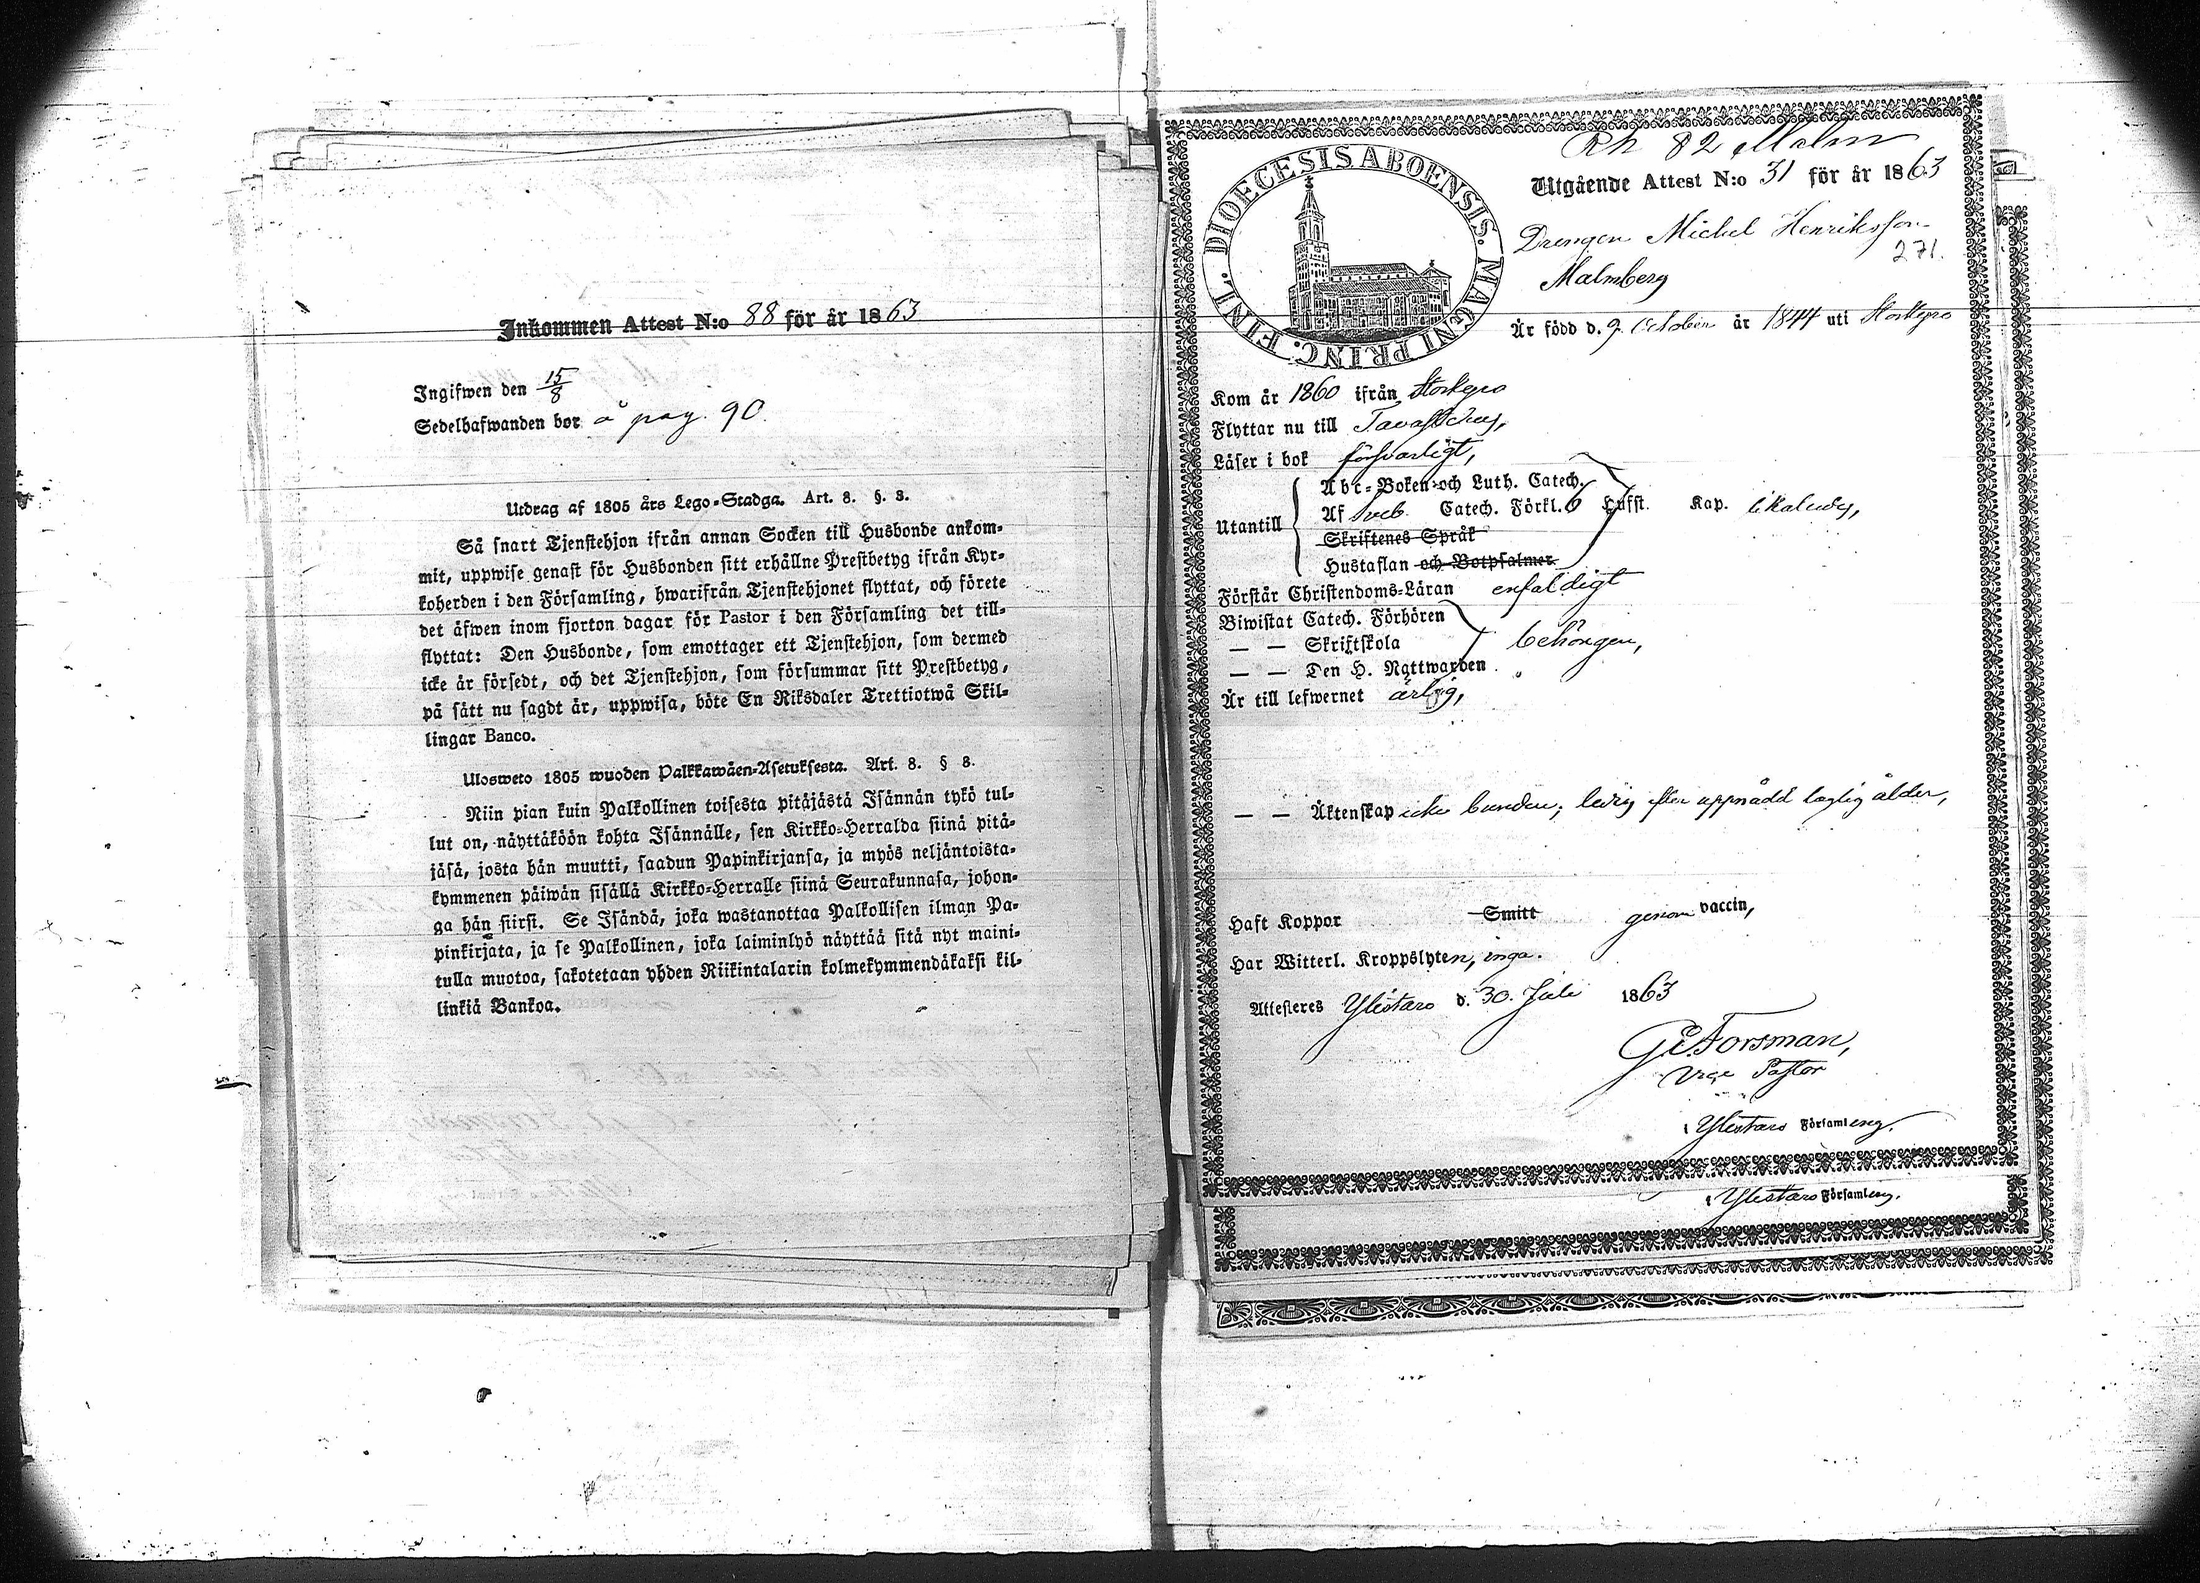 Inkommen Attest N:o 88 för år 1863
Ingifwen den 15/8
Sedelhafwanden bor å pag. 90.
Utdrag af 1805 års Lego-Stadga. Art. 8. §. 3.
Så snart Tjenstehjon ifrån annan Socken till Husbonde ankom-
mit, uppwise genast för Husbonden sitt erhållne Prestbetyg ifrån Kyr-
koherden i den Församling, hwarifrån Tjenstehjonet flyttat, och förete
det äfwen inom fjorton dagar för Pastor i den Församling det till-
flyttat: Den Husbonde, som emottager ett Tjenstehjon, som dermed
icke är försedt, och det Tjenstehjon, som försummar sitt Prestbetyg,
på sätt nu sagdt är, uppwisa, böte En Riksdaler Trettiotwå Skil-
lingar Banco.
Ulosweto 1805 wuoden Palkkawäen-Asetuksesta. Art. 8. § 8.
Niin pian kuin Palkollinen toisesta pitäjästä Isännän tykö tul-
lut on, näyttäköön kohta Isännälle, sen Kirkko-Herralda siinä pitä-
jäsä, josta hän muutti, saadun Papinkirjansa, ja myös neljäntoista-
kymmenen päiwän sisällä Kirkko-Herralle siinä Seurakunnasa, johon-
ga hän siirsi. Se Isändä, joka wastanottaa Palkollisen ilman Pa-
pinkirjata, ja se Palkollinen, joka laiminlyö näyttää sitä nyt maini-
tulla muotoa, sakotetaan yhden Riikintalarin kolmekymmendäkaksi kil-
linkiä Bankoa.
Rh 82 Malm
DIOECESIS ABOENSIS. MAGNI PRINC. FINL.
Utgående Attest N:o 31 för år 1863
Drengen Michel Henriksson
271.
Malmberg
Är född d. 9 October år 1844 uti Storkyro
Kom år 1860 ifrån Storkyro
Flyttar nu till Tavastehus,
Läser i bok försvarligt,
Abc-Boken och Luth. Catech.
Utantill Af Sveb. Catech. Förkl. 6 Hufst. Kap.
Skriftenes Språk
Hustaflan och Botpsalmer
Förstår Christendoms-Läran enfaldigt
Biwistat Catech. Förhören
— — Skriftskola behörigen,
— — Den H. Nattwarden
Är till lefwernet ärlig,
— — Äktenskap icke bunden; ledig efter uppnådd laglig ålder,
Haft Koppor Smitt genom vaccin,
Har Witterl. Kroppslyten, inga.
Attesteres Ylistaro d. 30. Juli 1863
G E Forsman,
Vice Pastor
i Ylistaro Församling.
i Ylistaro Församling.